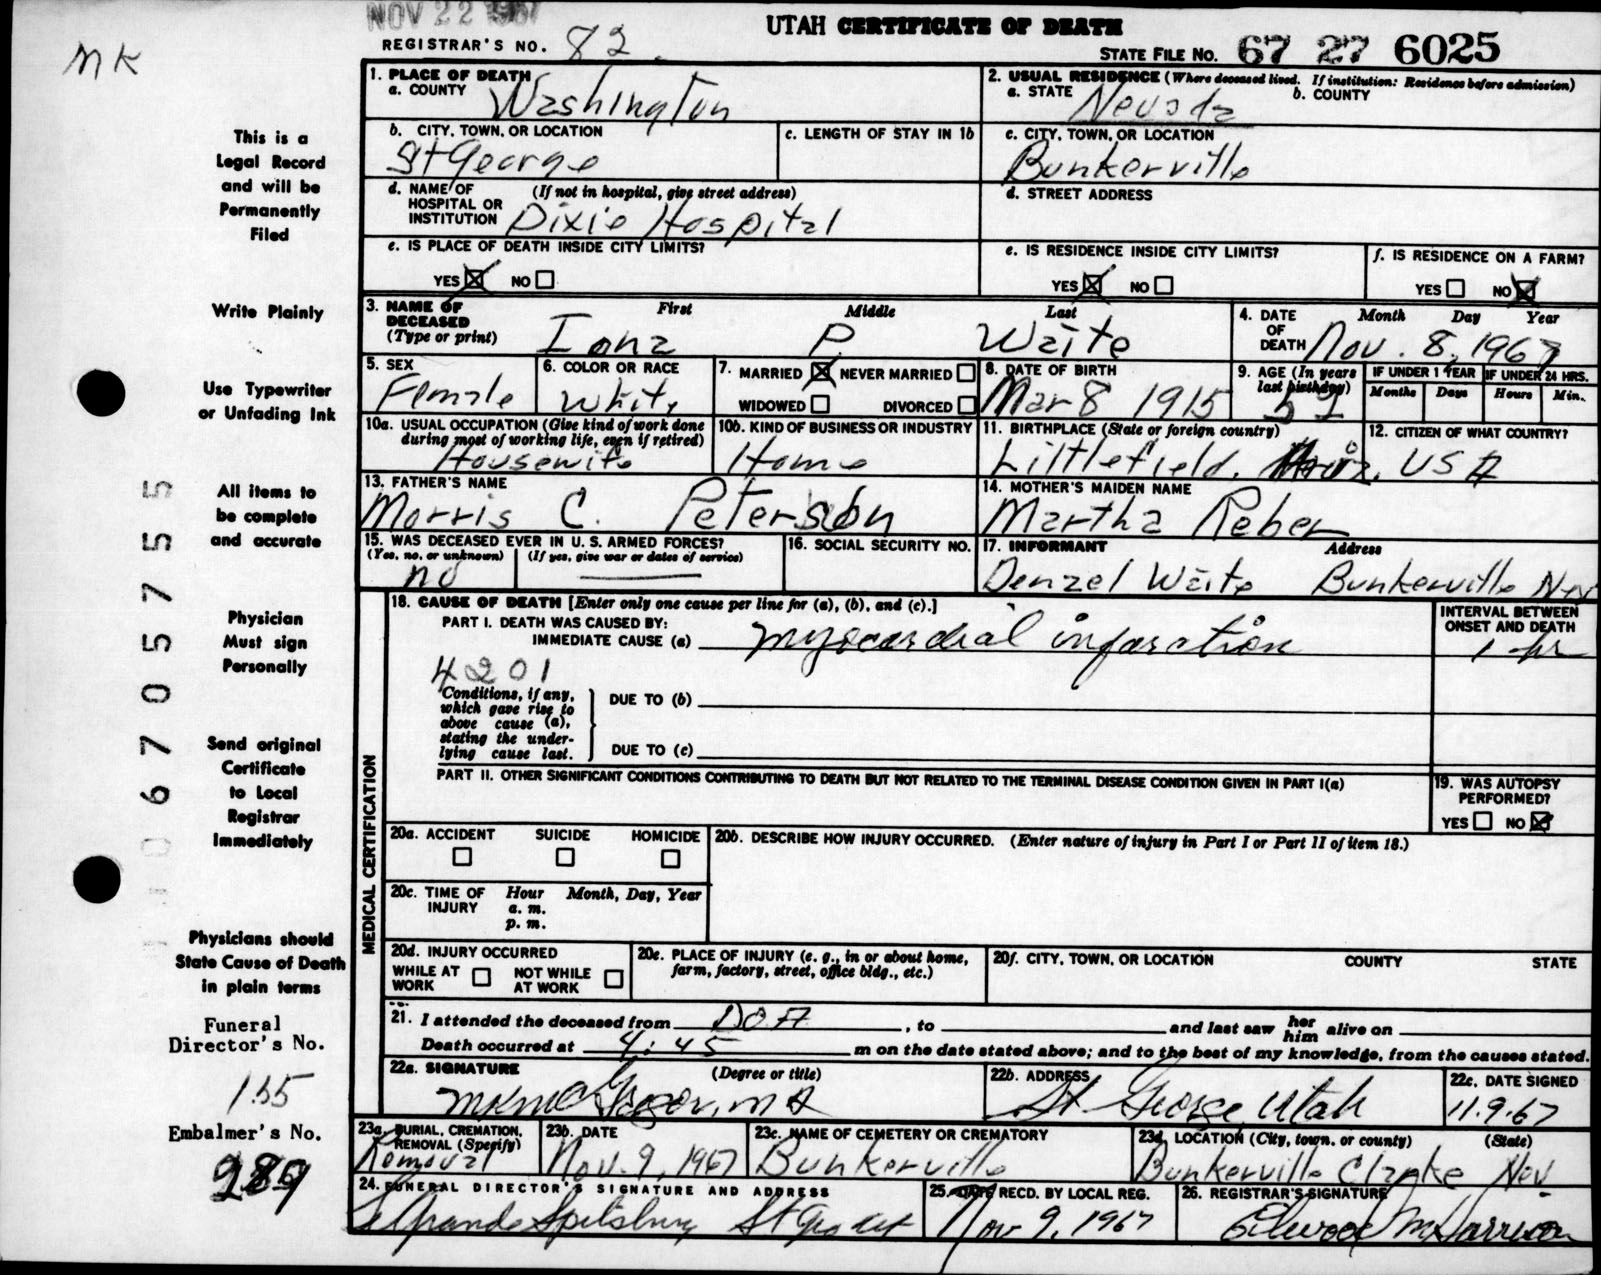 NOV 22 1967
UTAH CERTIFICATE OF DEATH
REGISTRAR'S NO. 82.
STATE FILE NO. 67 27 6025
MK
1. PLACE OF DEATH
a. COUNTY Washington
2. USUAL RESIDENCE (Where deceased lived. If institution: Residence before admission)
a. STATE Nevada b. COUNTY
b. CITY, TOWN, OR LOCATION St George
c. LENGTH OF STAY IN 1b
c. CITY, TOWN, OR LOCATION Bunkerville
d. NAME OF HOSPITAL OR INSTITUTION (If not in hospital, give street address) Dixie Hospital
d. STREET ADDRESS
e. IS PLACE OF DEATH INSIDE CITY LIMITS?
YES ☒ NO ☐
e. IS RESIDENCE INSIDE CITY LIMITS?
YES ☒ NO ☐
f. IS RESIDENCE ON A FARM?
YES ☐ NO ☒
3. NAME OF DECEASED (Type or print) First Middle Last
Iona P. Waite
4. DATE OF DEATH Month Day Year
Nov. 8, 1967
5. SEX Female
6. COLOR OR RACE White
7. MARRIED ☒ NEVER MARRIED ☐
WIDOWED ☐ DIVORCED ☐
8. DATE OF BIRTH Mar 8 1915
9. AGE (In years last birthday) 52
IF UNDER 1 YEAR Months Days
IF UNDER 24 HRS. Hours Min.
10a. USUAL OCCUPATION (Give kind of work done during most of working life, even if retired) Housewife
10b. KIND OF BUSINESS OR INDUSTRY Home
11. BIRTHPLACE (State or foreign country) Littlefield, Ariz.
12. CITIZEN OF WHAT COUNTRY? USA
13. FATHER'S NAME Morris C. Peterson
14. MOTHER'S MAIDEN NAME Martha Reber
15. WAS DECEASED EVER IN U. S. ARMED FORCES?
(Yes, no, or unknown) (If yes, give war or dates of service)
no
16. SOCIAL SECURITY NO.
17. INFORMANT Address
Denzel Waite Bunkerville Nev
18. CAUSE OF DEATH [Enter only one cause per line for (a), (b), and (c).]
PART I. DEATH WAS CAUSED BY:
IMMEDIATE CAUSE (a) myocardial infarction
INTERVAL BETWEEN ONSET AND DEATH
1 hr
4201
Conditions, if any, which gave rise to above cause (a), stating the underlying cause last.
DUE TO (b)
DUE TO (c)
PART II. OTHER SIGNIFICANT CONDITIONS CONTRIBUTING TO DEATH BUT NOT RELATED TO THE TERMINAL DISEASE CONDITION GIVEN IN PART I(a)
19. WAS AUTOPSY PERFORMED?
YES ☐ NO ☒
MEDICAL CERTIFICATION
20a. ACCIDENT SUICIDE HOMICIDE
20b. DESCRIBE HOW INJURY OCCURRED. (Enter nature of injury in Part I or Part II of item 18.)
20c. TIME OF INJURY Hour Month, Day, Year
a. m.
p. m.
20d. INJURY OCCURRED
WHILE AT WORK ☐ NOT WHILE AT WORK ☐
20e. PLACE OF INJURY (e. g., in or about home, farm, factory, street, office bldg., etc.)
20f. CITY, TOWN, OR LOCATION COUNTY STATE
21. I attended the deceased from DOA, to and last saw her him alive on
Death occurred at 4:45 m on the date stated above; and to the best of my knowledge, from the causes stated.
22a. SIGNATURE (Degree or title)
McGregor, MD
22b. ADDRESS St George, Utah
22c. DATE SIGNED 11.9.67
23a. BURIAL, CREMATION, REMOVAL (Specify) Removal
23b. DATE Nov. 9, 1967
23c. NAME OF CEMETERY OR CREMATORY Bunkerville
23d. LOCATION (City, town, or county) (State)
Bunkerville Clarke Nev.
24. FUNERAL DIRECTOR'S SIGNATURE AND ADDRESS
LeGrande Spilsbury St Geo Ut
25. DATE RECD. BY LOCAL REG. Nov 9, 1967
26. REGISTRAR'S SIGNATURE
This is a
Legal Record
and will be
Permanently
Filed
Write Plainly
Use Typewriter
or Unfading Ink
All items to
be complete
and accurate
Physician
Must sign
Personally
Send original
Certificate
to Local
Registrar
Immediately
Physicians should
State Cause of Death
in plain terms
Funeral
Director's No.
155
Embalmer's No.
289